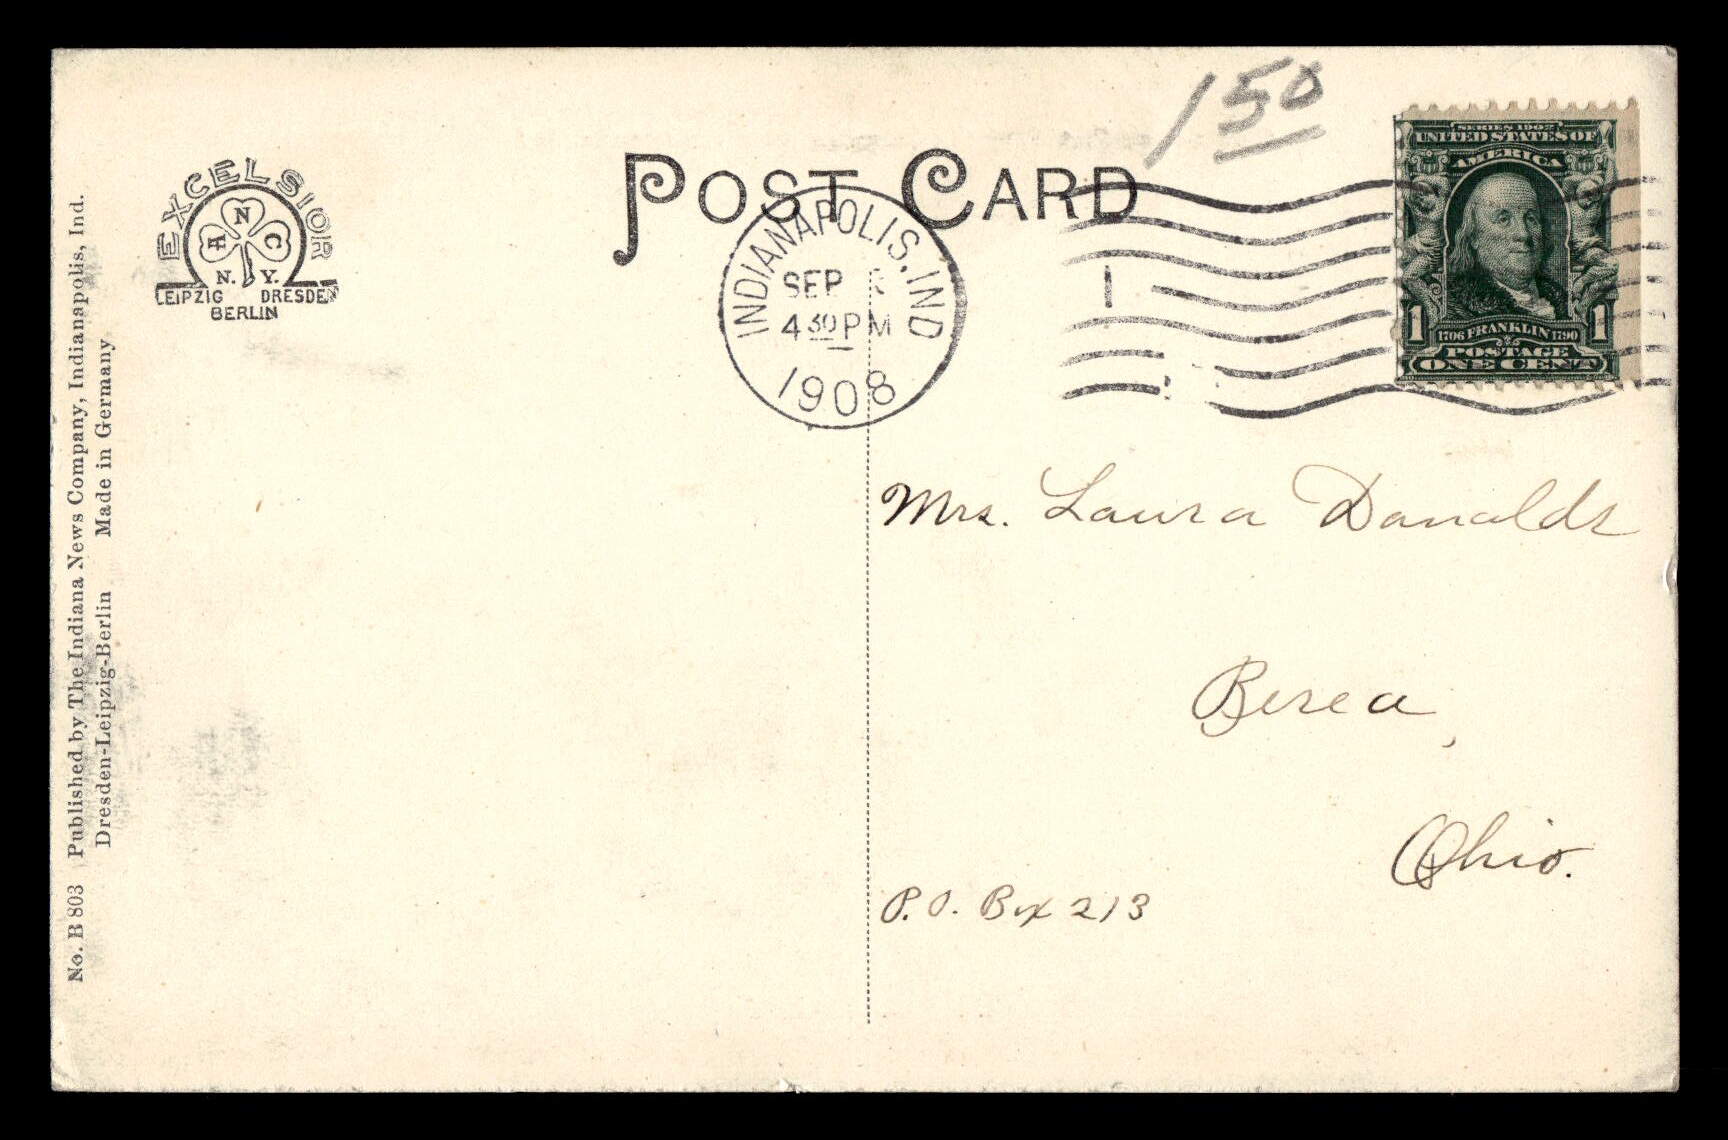 150
POST CARD
EXCELSIOR
N
A C
N. Y.
LEIPZIG DRESDEN
BERLIN
INDIANAPOLIS, IND
SEP
4 30 PM
1908
1
SERIES 1902
UNITED STATES OF
AMERICA
1 1
1706 FRANKLIN 1790
POSTAGE
ONE CENT
Mrs. Laura Danalds
Berea,
Ohio.
P.O. Box 213
No. B 803 Published by The Indiana News Company, Indianapolis, Ind.
Dresden-Leipzig-Berlin Made in Germany